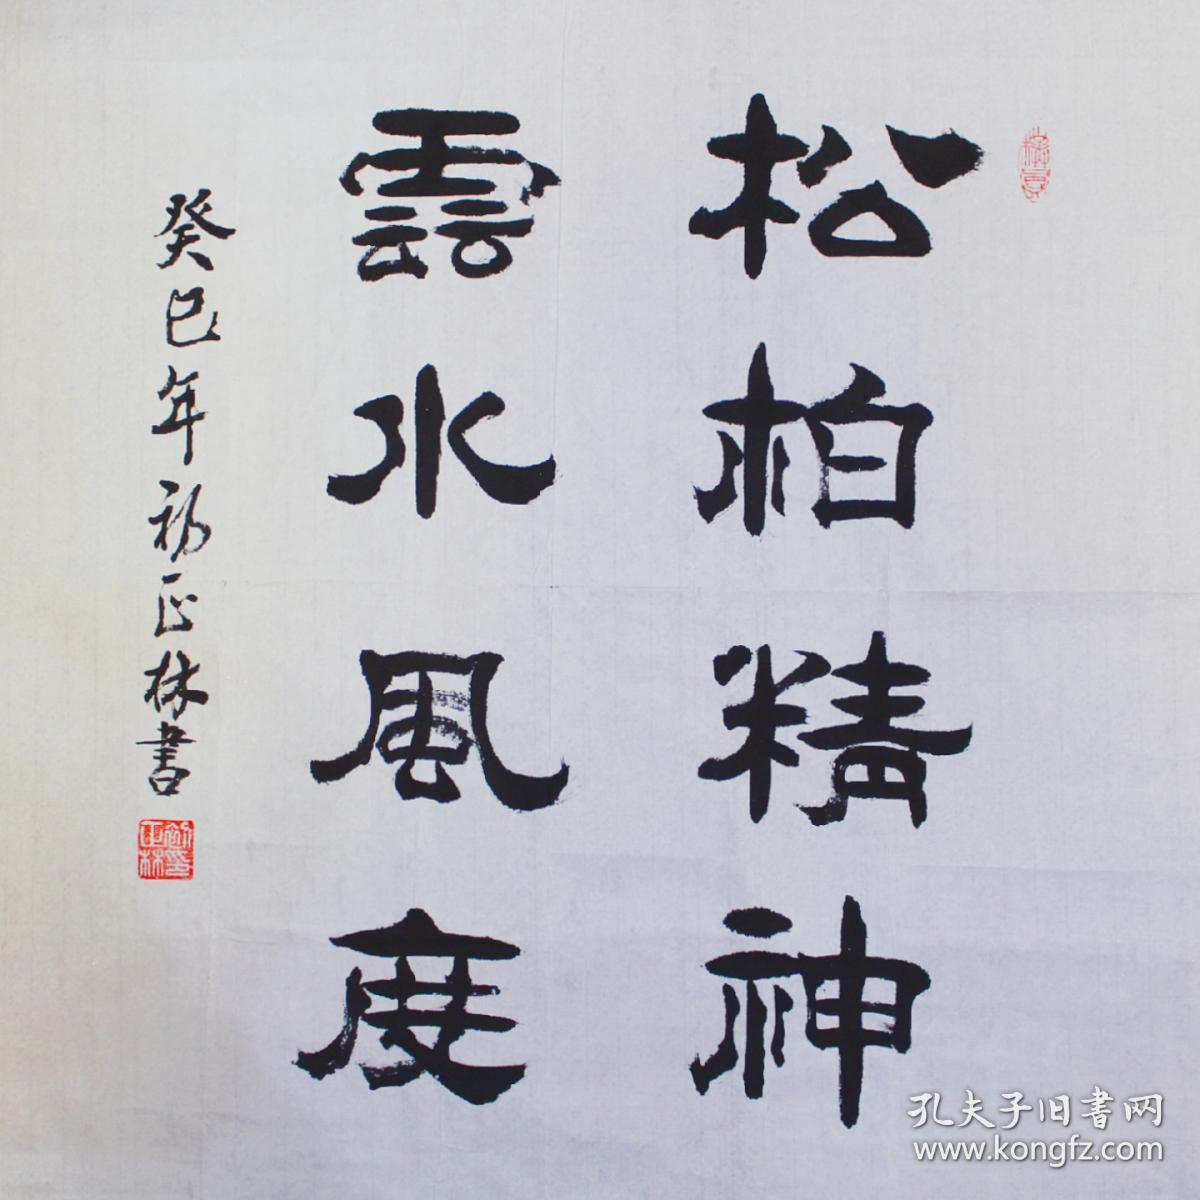 松柏精神
雲水風度
癸巳年初正林書
孔夫子旧書网
www.kongfz.com